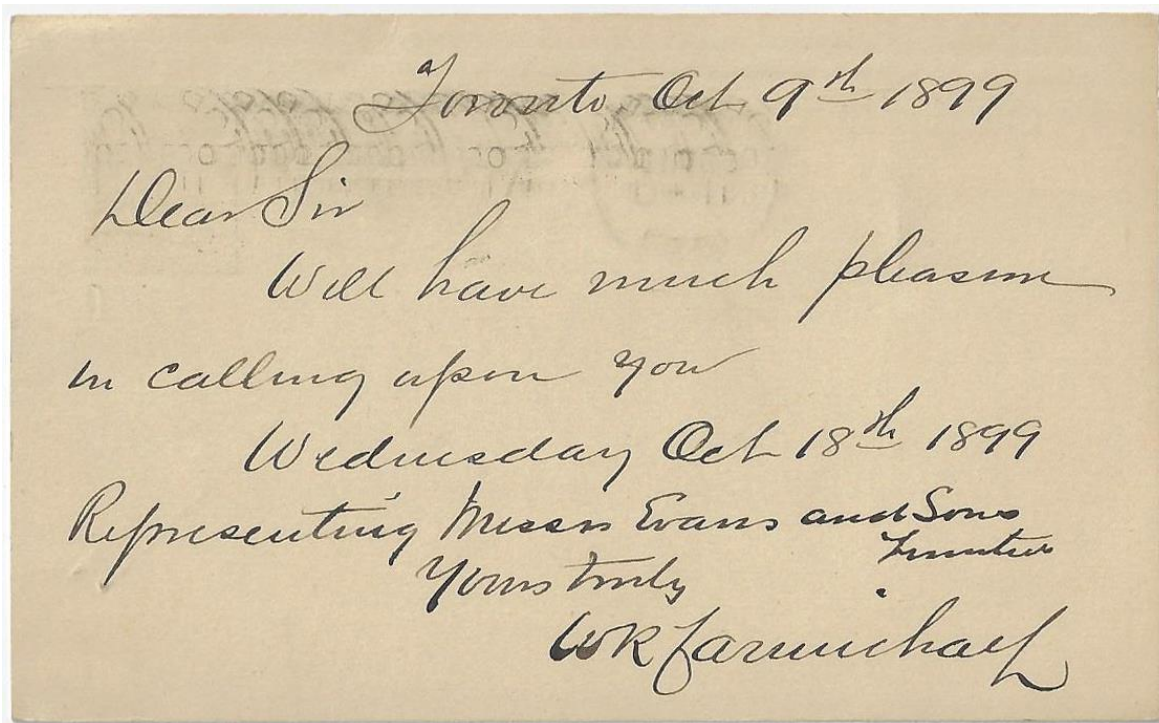 Toronto Oct 9th 1899
Dear Sir
Will have much pleasure
in calling upon you
Wednesday Oct 18th 1899
Representing Messrs Evans and Sons
Limited
Yours truly
WR Carmichael